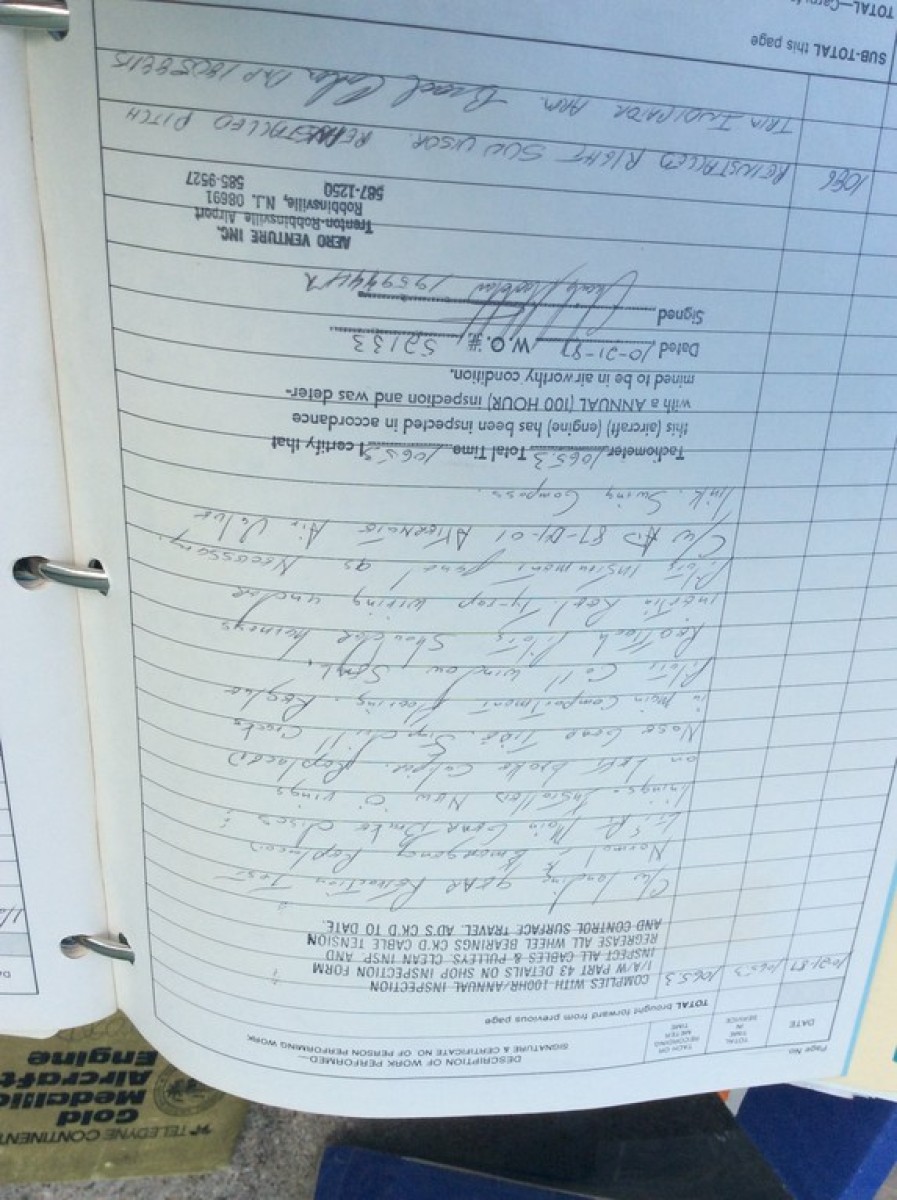 Page No.
DATE
TOTAL TIME IN SERVICE
TACH OR RECORDING METER TIME
DESCRIPTION OF WORK PERFORMED—
SIGNATURE & CERTIFICATE NO. OF PERSON PERFORMING WORK
TOTAL brought forward from previous page
10-21-87 1065.3 1065.3
COMPLIES WITH 100HR/ANNUAL INSPECTION
I/A/W PART 43 DETAILS ON SHOP INSPECTION FORM
INSPECT ALL CABLES & PULLEYS, CLEAN INSP. AND
REGREASE ALL WHEEL BEARINGS CK'D CABLE TENSION
AND CONTROL SURFACE TRAVEL. AD'S CK'D TO DATE.
C/W landing gear Retraction Test
Normal & Emergency Replaced
L & R Main Gear Brake discs &
linings. Installed New 'O' rings
on Left brake Caliper. Replaced
Nose Gear Tire. Stop drill Cracks
in Main Compartment flooring. Replace
Pilots Window
Reattach Pilots Shoulder harness
inertia Reel. Ty-rap wiring under
Pilots Instrument panel as Necessary.
C/W AD 87-01-01 Alternate Air Valve
link. Swing Compass.
Tachometer 1065.3 Total Time 1065.3 I certify that
this (aircraft) (engine) has been inspected in accordance
with a ANNUAL (100 HOUR) inspection and was deter-
mined to be in air worthy condition.
Dated 10-21-87 W.O.# 52133
Signed
AERO VENTURE INC.
Trenton-Robbinsville Airport
Robbinsville, N.J. 08691
587-1250 585-9527
1086 REINSTALLED RIGHT SUN VISOR. REINSTALLED PITCH
TRIM INDICATOR ARM.
SUB-TOTAL this page
TELEDYNE CONTINENT
Gold
Medallio
Aircraft
Engine